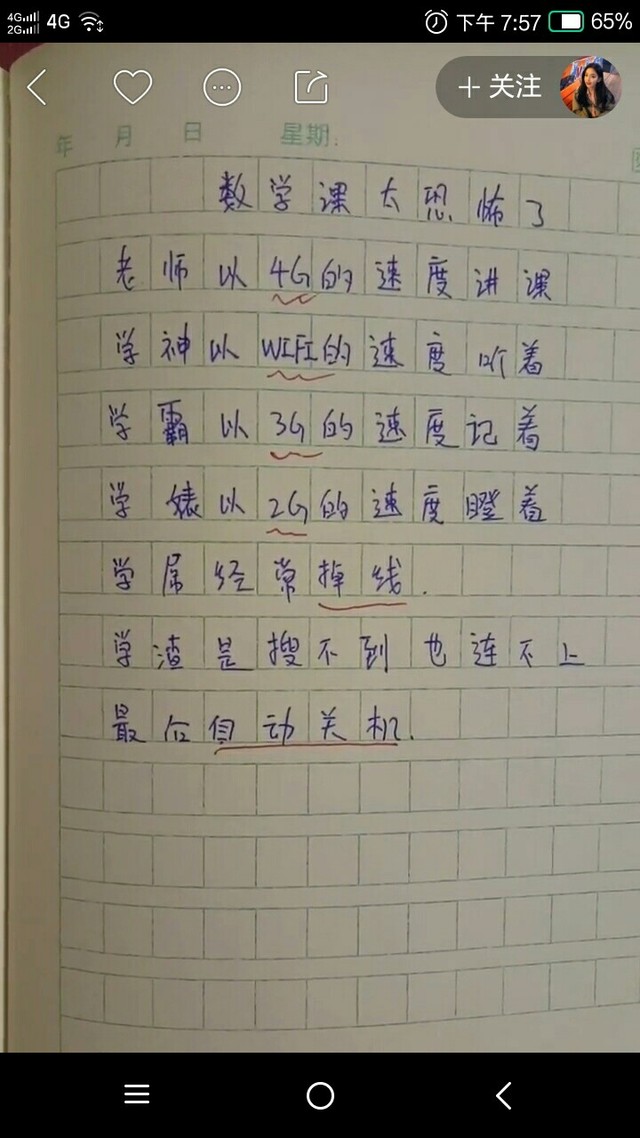 4G 2G 4G 下午 7:57 65%
+ 关注
年 月 日 星期:
数学课太恐怖了
老师以4G的速度讲课
学神以WIFI的速度听着
学霸以3G的速度记着
学婊以2G的速度瞪着
学屌经常掉线.
学渣是搜不到也连不上
最后自动关机.